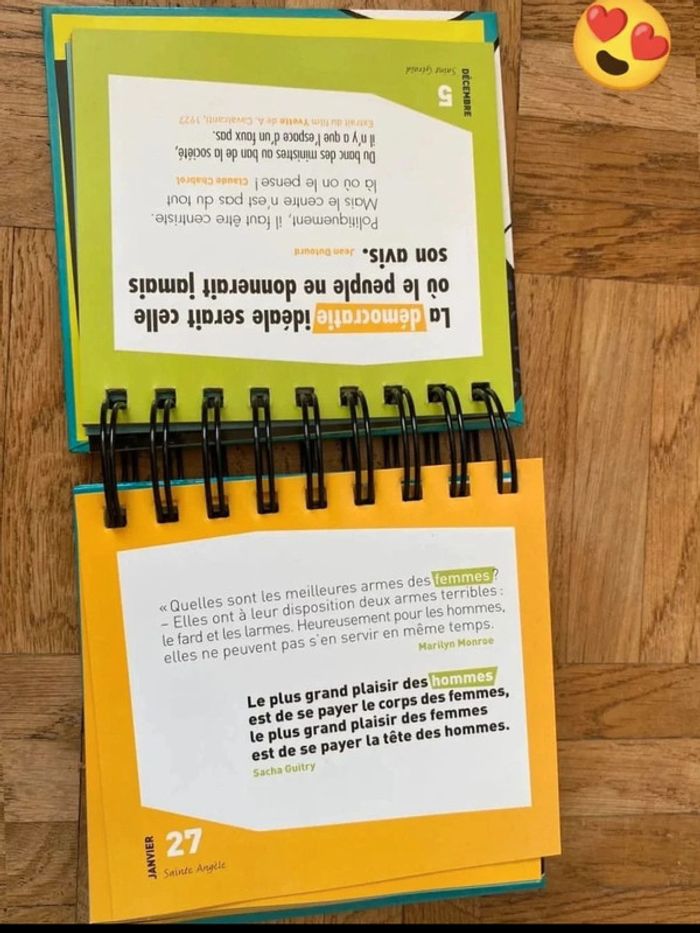 La démocratie idéale serait celle
où le peuple ne donnerait jamais
son avis. Jean Dutourd
Politiquement, il faut être centriste.
Mais le centre n'est pas du tout
là où on le pense ! Claude Chabrol
Du banc des ministres au ban de la société,
il n'y a que l'espace d'un faux pas.
Extrait du film Yvette de A. Cavalcanti, 1927
5
DÉCEMBRE
Saint Gérald
« Quelles sont les meilleures armes des femmes ?
– Elles ont à leur disposition deux armes terribles :
le fard et les larmes. Heureusement pour les hommes,
elles ne peuvent pas s'en servir en même temps.
Marilyn Monroe
Le plus grand plaisir des hommes
est de se payer le corps des femmes,
le plus grand plaisir des femmes
est de se payer la tête des hommes.
Sacha Guitry
JANVIER
27
Sainte Angèle